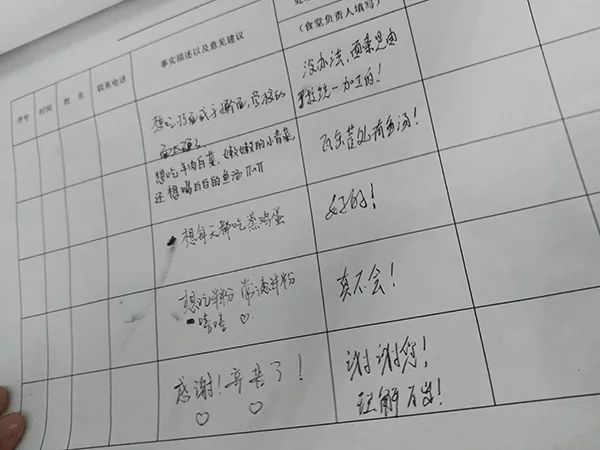 序号
时间
姓 名
联系电话
事实描述以及意见建议
(食堂负责人填写)
面太硬了
没办法,面条是由
学校统一加工的!
想吃羊肉白菜,嫩嫩的小青菜,
还想喝白白的鱼汤
有鱼汤!
想每天都吃蒸鸡蛋
好的!
想吃米粉 常德米粉
嘻嘻♡
真不会!
感谢!辛苦了!
♡ ♡
谢谢您!
理解万岁!